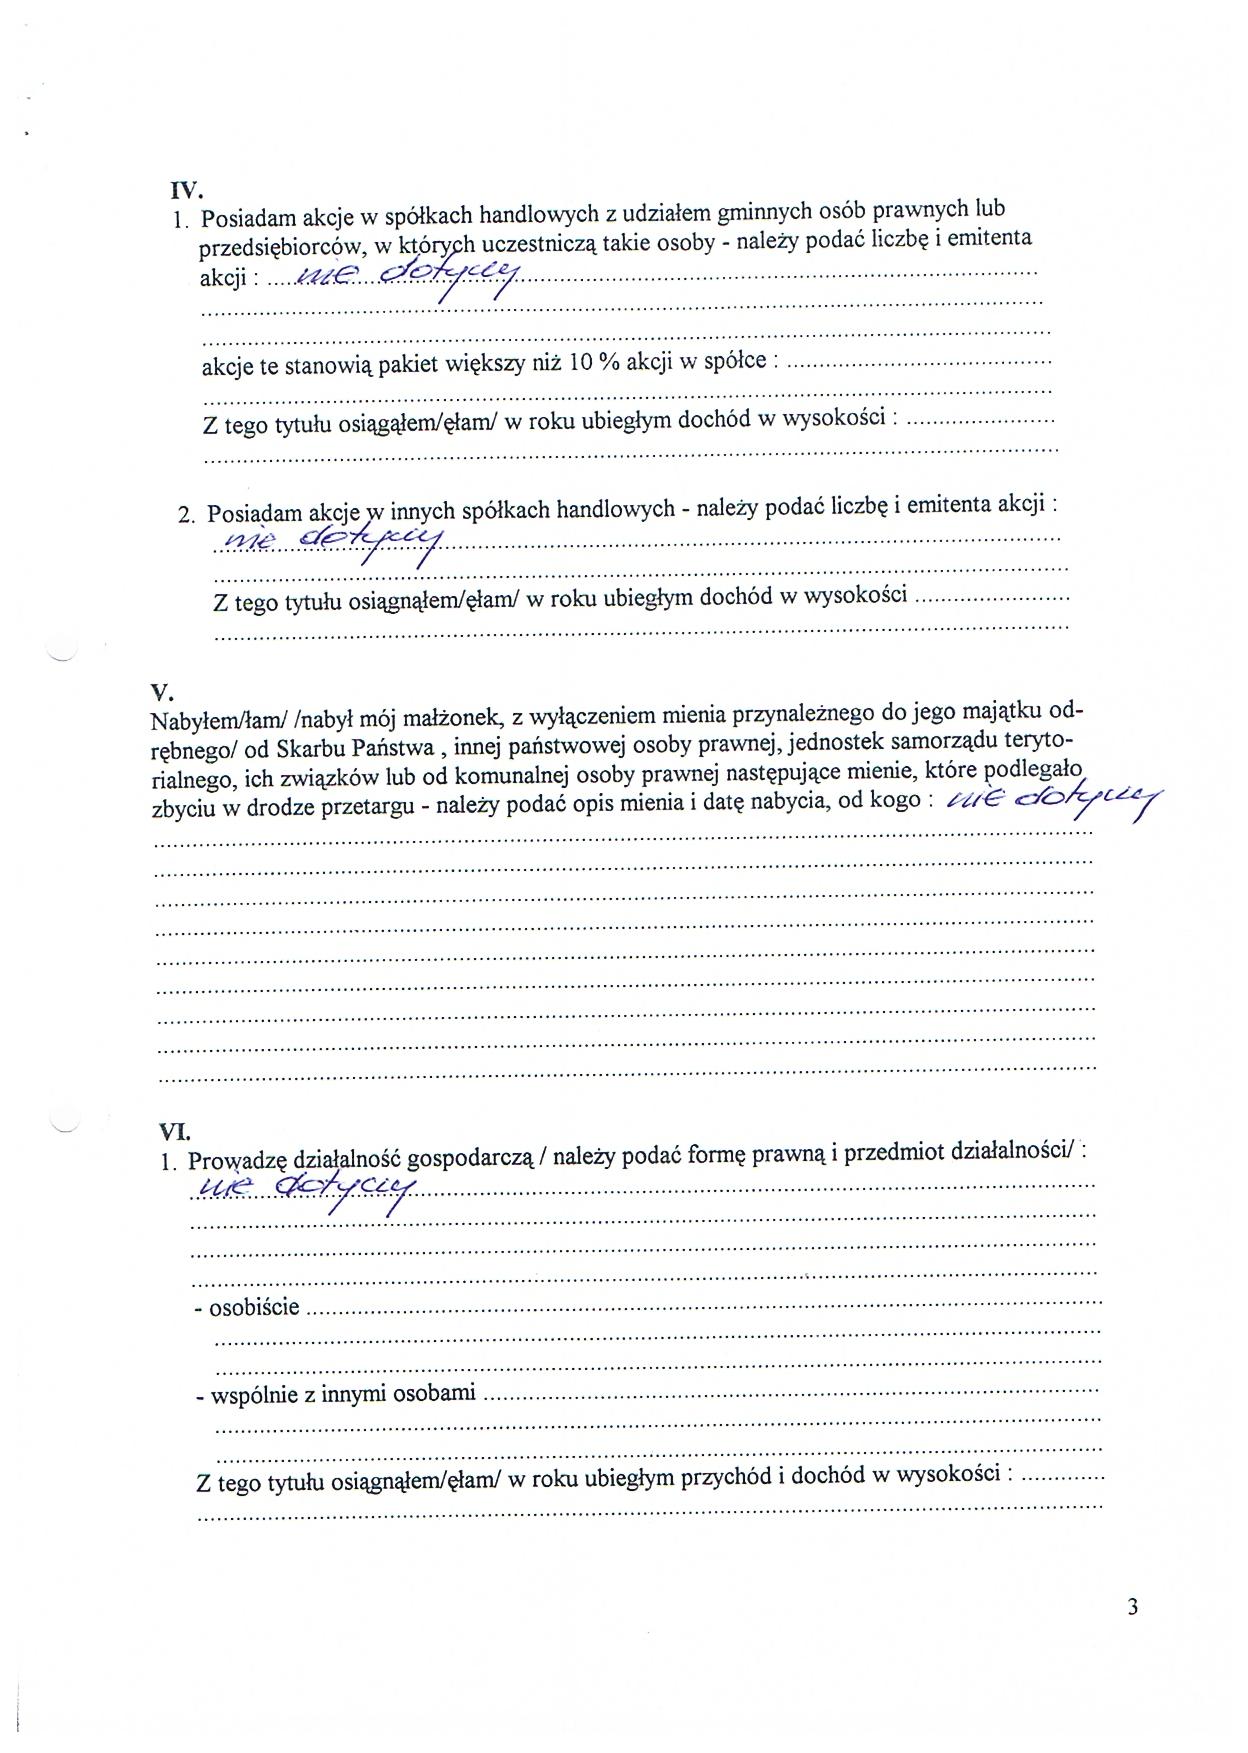 IV.
1. Posiadam akcje w spółkach handlowych z udziałem gminnych osób prawnych lub
przedsiębiorców, w których uczestniczą takie osoby - należy podać liczbę i emitenta
akcji : ..... nie dotyczy ..............................
..............................
..............................
akcje te stanowią pakiet większy niż 10 % akcji w spółce : ..............................
..............................
Z tego tytułu osiągąłem/ęłam/ w roku ubiegłym dochód w wysokości : ..............................
..............................
2. Posiadam akcje w innych spółkach handlowych - należy podać liczbę i emitenta akcji :
nie dotyczy ..............................
..............................
Z tego tytułu osiągnąłem/ęłam/ w roku ubiegłym dochód w wysokości ..............................
..............................
V.
Nabyłem/łam/ /nabył mój małżonek, z wyłączeniem mienia przynależnego do jego majątku od-
rębnego/ od Skarbu Państwa , innej państwowej osoby prawnej, jednostek samorządu teryto-
rialnego, ich związków lub od komunalnej osoby prawnej następujące mienie, które podlegało
zbyciu w drodze przetargu - należy podać opis mienia i datę nabycia, od kogo : nie dotyczy
..............................
..............................
..............................
..............................
..............................
..............................
..............................
..............................
..............................
VI.
1. Prowadzę działalność gospodarczą / należy podać formę prawną i przedmiot działalności/ :
nie dotyczy ..............................
..............................
..............................
..............................
- osobiście ..............................
..............................
..............................
- wspólnie z innymi osobami ..............................
..............................
..............................
Z tego tytułu osiągnąłem/ęłam/ w roku ubiegłym przychód i dochód w wysokości : .............
..............................
3